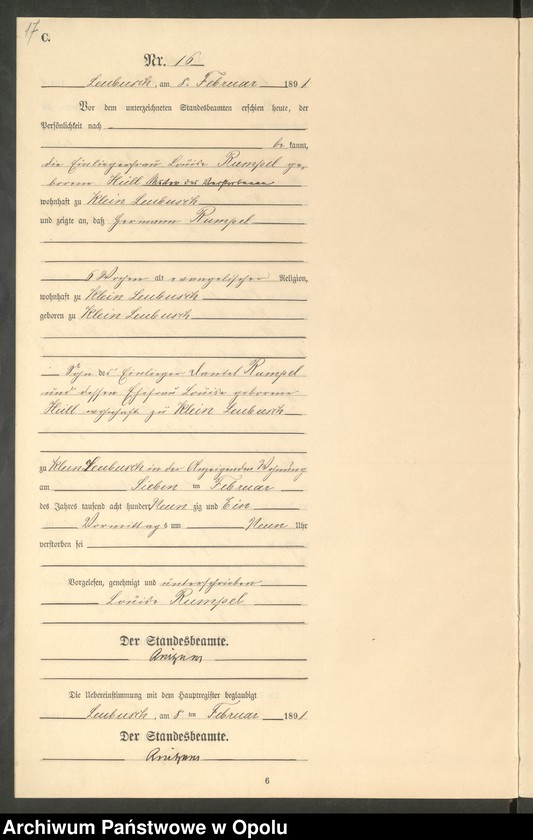 17
C.
Nr. 16
Leubusch, am 8. Februar 1891
Vor dem unterzeichneten Standesbeamten erschien heute, der
Persönlichkeit nach
be kannt,
die Einliegerfrau Louise Rumpel ge-
borene Hüll
wohnhaft zu Klein Leubusch
und zeigte an, daß Hermann Rumpel
6 Wochen alt evangelischer Religion,
wohnhaft zu Klein Leubusch
geboren zu Klein Leubusch
Sohn des Einlieger Daniel Rumpel
und dessen Ehefrau Louise geborene
Hüll wohnhaft zu Klein Leubusch
zu Klein Leubusch in der Anzeigenden Wohnung
am Sieben ten Februar
des Jahres tausend acht hundert Neun zig und Ein
Vormittags um Neun Uhr
verstorben sei
Vorgelesen, genehmigt und unterschrieben
Louise Rumpel
Der Standesbeamte.
Die Uebereinstimmung mit dem Hauptregister beglaubigt
Leubusch, am 8 ten Februar 1891
Der Standesbeamte.
6
Archiwum Państwowe w Opolu